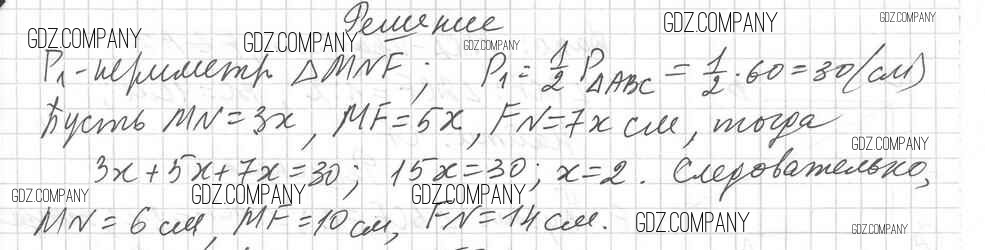 Решение
GDZ.COMPANY GDZ.COMPANY GDZ.COMPANY GDZ.COMPANY GDZ.COMPANY
P₁ - периметр ΔMNF; P₁ = 1/2 P_ΔABC = 1/2 · 60 = 30 (см)
Пусть MN = 3x, MF = 5x, FN = 7x см, тогда
GDZ.COMPANY
3x + 5x + 7x = 30; 15x = 30; x = 2. Следовательно,
GDZ.COMPANY GDZ.COMPANY GDZ.COMPANY
MN = 6 см, MF = 10 см, FN = 14 см.
GDZ.COMPANY GDZ.COMPANY